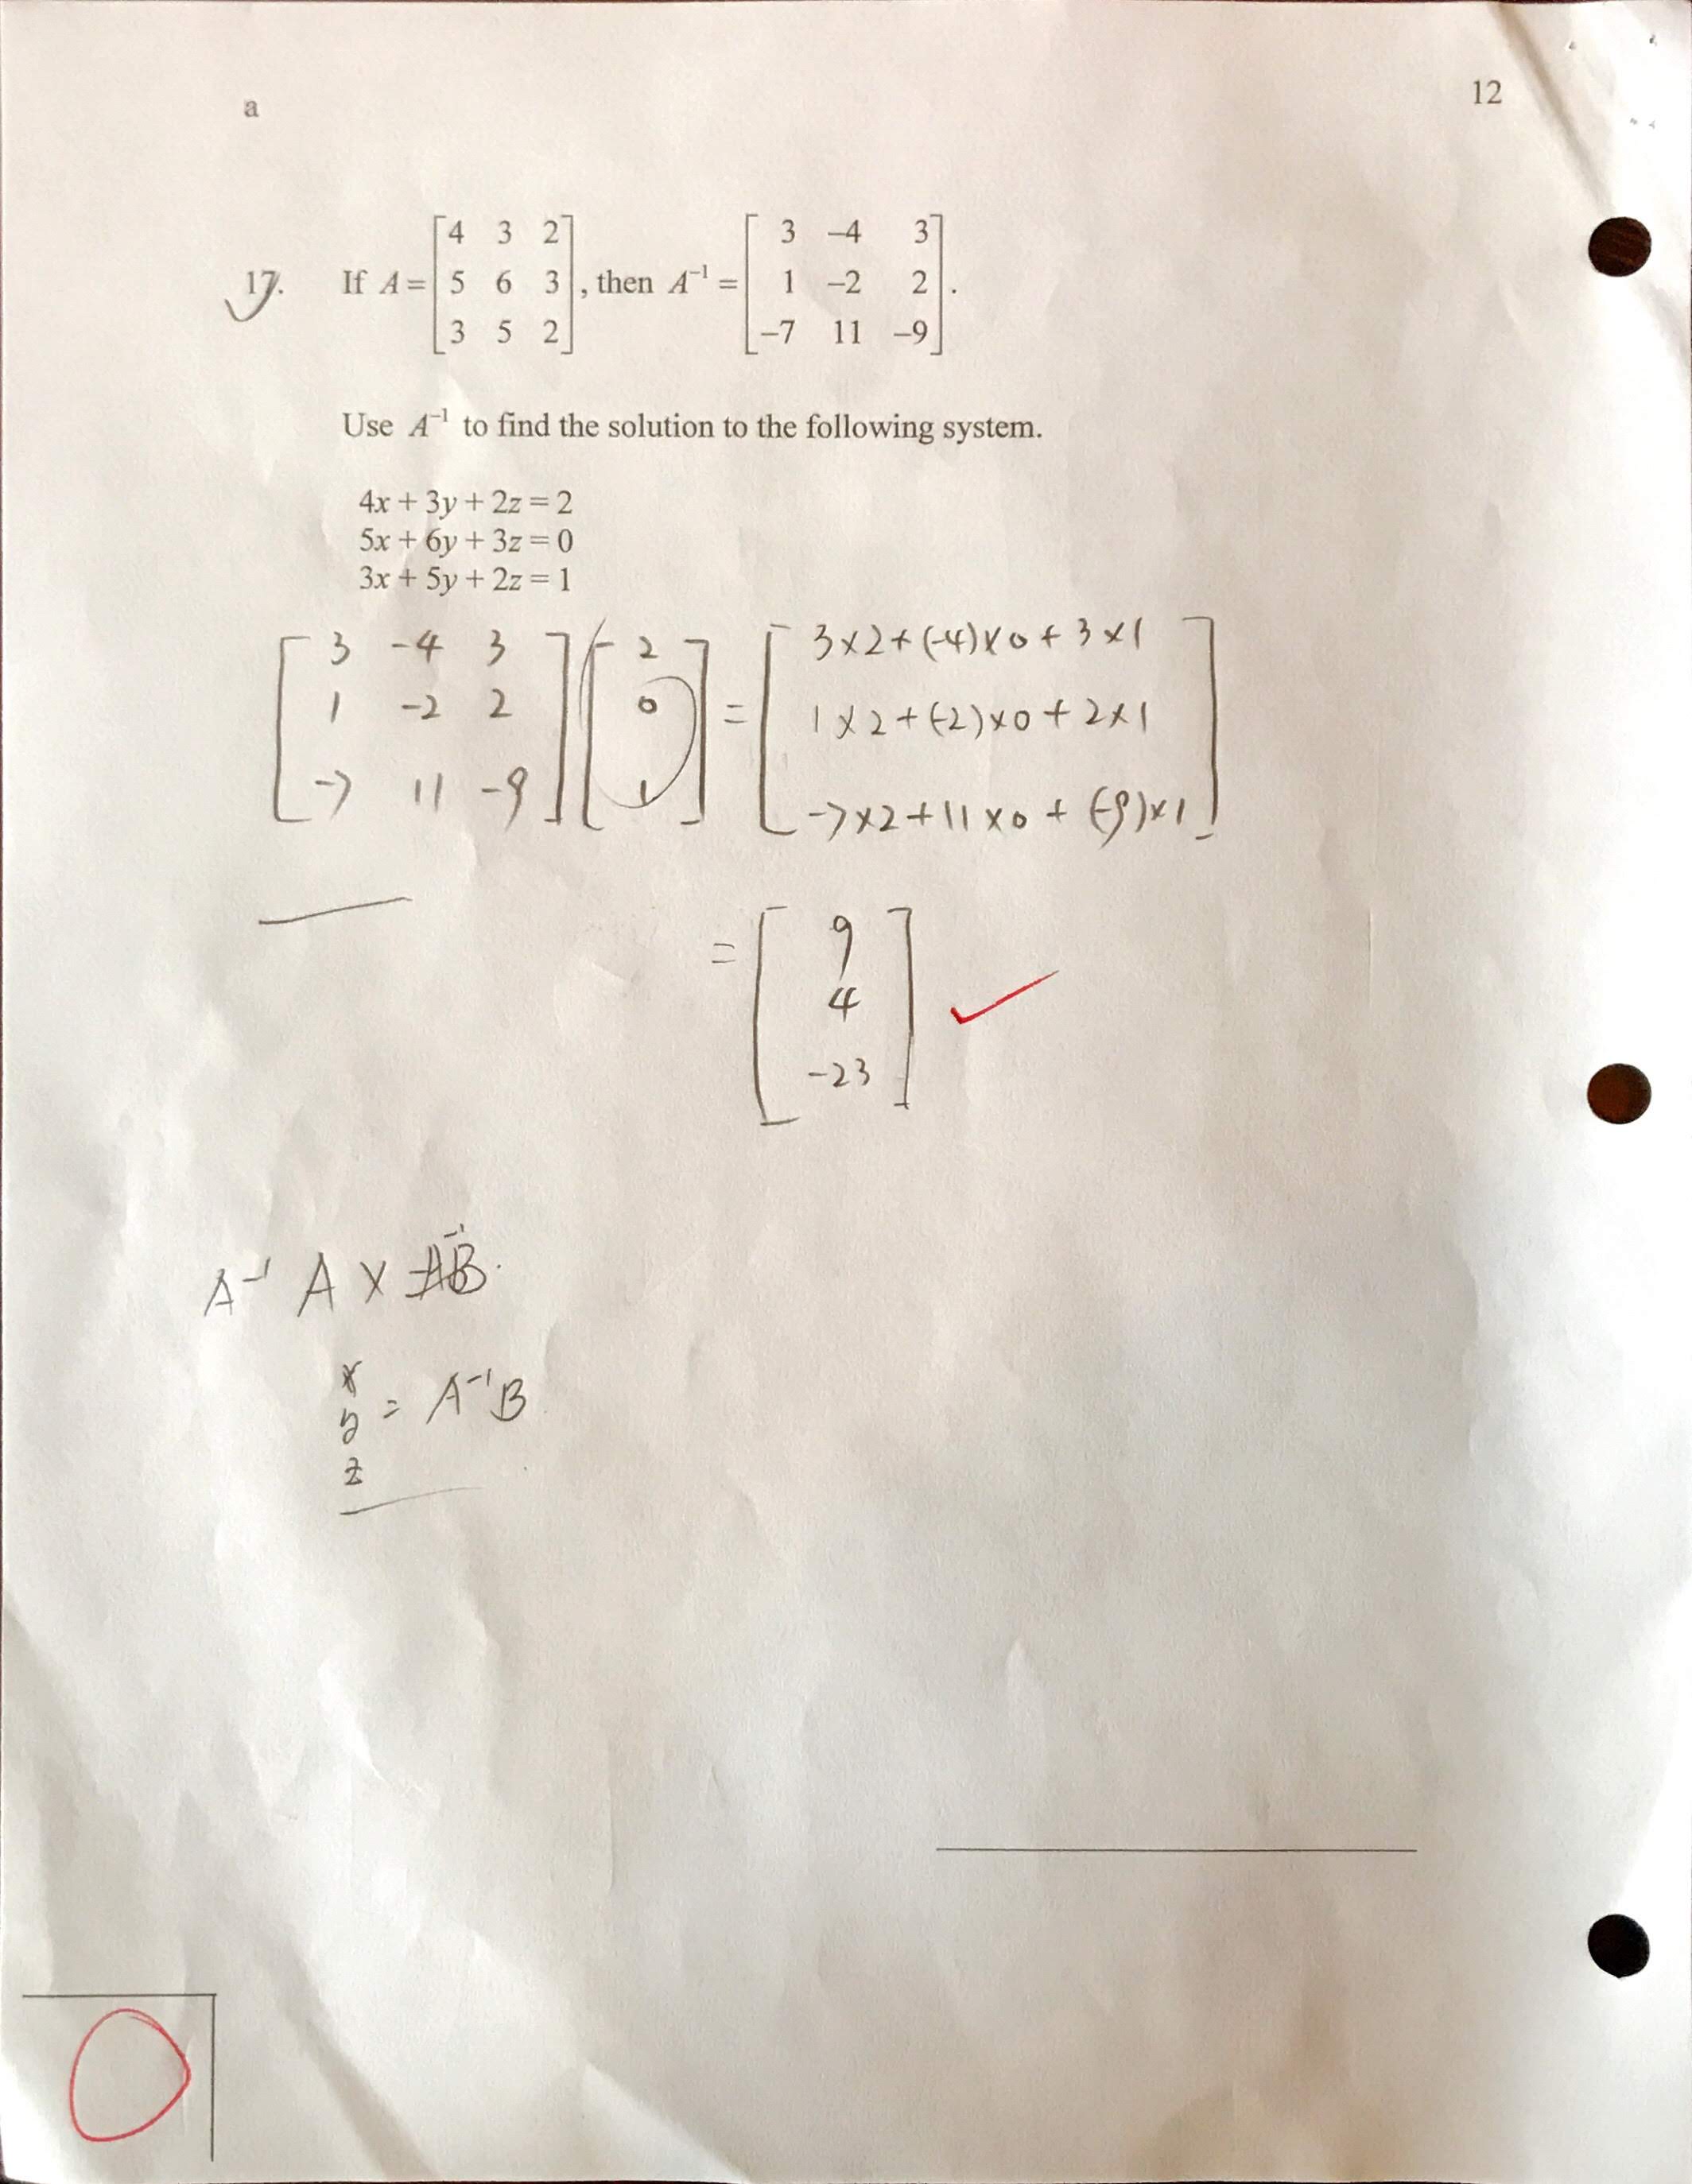 a
12
17. If A = [4 3 2; 5 6 3; 3 5 2], then A⁻¹ = [3 –4 3; 1 –2 2; –7 11 –9].
Use A⁻¹ to find the solution to the following system.
4x + 3y + 2z = 2
5x + 6y + 3z = 0
3x + 5y + 2z = 1
[3 -4 3; 1 -2 2; -7 11 -9] [2; 0; 1] = [3×2+(-4)×0+3×1; 1×2+(-2)×0+2×1; -7×2+11×0+(-9)×1]
= [9; 4; -23] ✓
A⁻¹ A X = A⁻¹B.
x
y = A⁻¹B
z